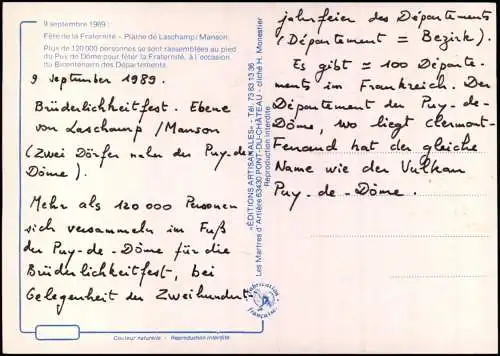 9 septembre 1989 :
Fête de la Fraternité - Plaine de Laschamp/Manson.
Plus de 120 000 personnes se sont rassemblées au pied
du Puy de Dôme pour fêter la Fraternité, à l'occasion
du Bicentenaire des Départements.
9 September 1989.
Brüderlichkeitfest. Ebene
von Laschamp / Manson
(Zwei Dörfer nahe der Puy-de-
Dôme).
Mehr als 120 000 Personen
sich versammeln im Fuß
der Puy-de-Dôme für die
Brüderlichkeitfest, bei
Gelegenheit der Zweihundert-
«EDITIONS ARTISANALES» - Tél. 73 83 13 36
Les Martres d'Artière 63430 PONT-DU-CHÂTEAU - cliché H. Monestier
Reproduction interdite
Fabrication
Française
jahrfeier des Départements
(Département = Bezirk).
Es gibt ≃ 100 Départe-
ments im Frankreich. Der
Département der Puy-de-
Dôme, wo liegt Clermont-
Ferrand hat der gleiche
Name wie der Vulkan
Puy-de-Dôme.
Couleur naturelle - Reproduction interdite